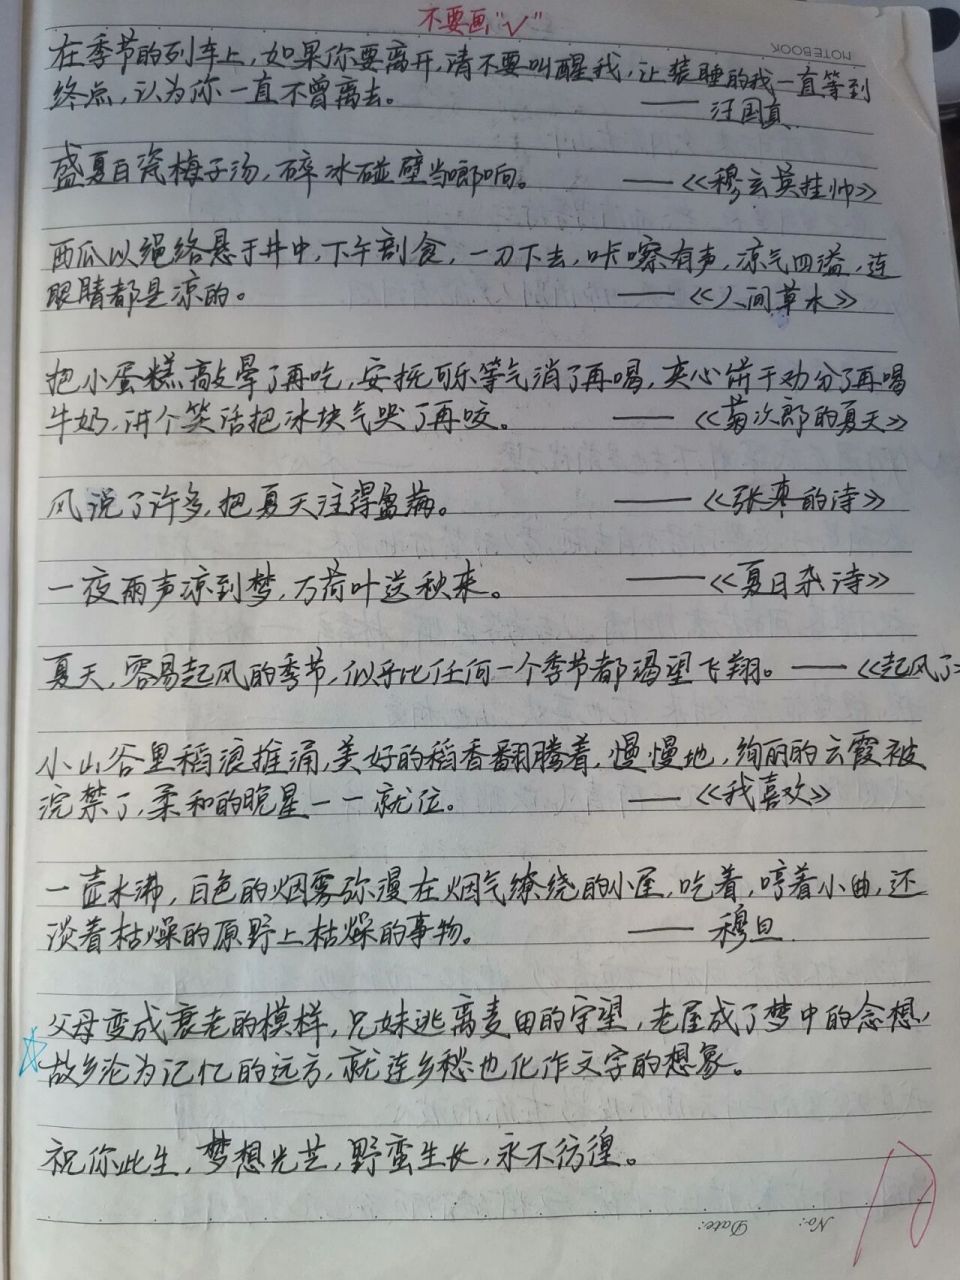 不要画"√"
NOTEBOOK
在季节的列车上，如果你要离开，请不要叫醒我，让装睡的我一直等到
终点，认为你一直不曾离去。 —— 汪国真
盛夏白瓷梅子汤，碎冰碰壁当啷响。 ——《穆玄英挂帅》
西瓜以绳络悬于井中，下午剖食，一刀下去，咔嚓有声，凉气四溢，连
眼睛都是凉的。 ——《人间草木》
把小蛋糕敲晕了再吃，安抚可乐等气消了再喝，夹心饼干劝分了再喝
牛奶，讲个笑话把冰块气哭了再咬。 ——《菊次郎的夏天》
风说了许多，把夏天注得盈满。 ——《张枣的诗》
一夜雨声凉到梦，万荷叶送秋来。 ——《夏日杂诗》
夏天，容易起风的季节，似乎比任何一个季节都渴望飞翔。——《起风了》
小山谷里稻浪推涌，美好的稻香翻腾着，慢慢地，绚丽的云霞被
浣禁了，柔和的晚星一一就位。 ——《我喜欢》
一壶水沸，白色的烟雾弥漫在烟气缭绕的小屋，吃着，哼着小曲，还
谈着枯燥的原野上枯燥的事物。 —— 穆旦
☆父母变成衰老的模样，兄妹逃离麦田的守望，老屋成了梦中的念想，
故乡沦为记忆的远方，就连乡愁也化作文字的想象。
祝你此生，梦想光芒，野蛮生长，永不彷徨。
No:
Date: